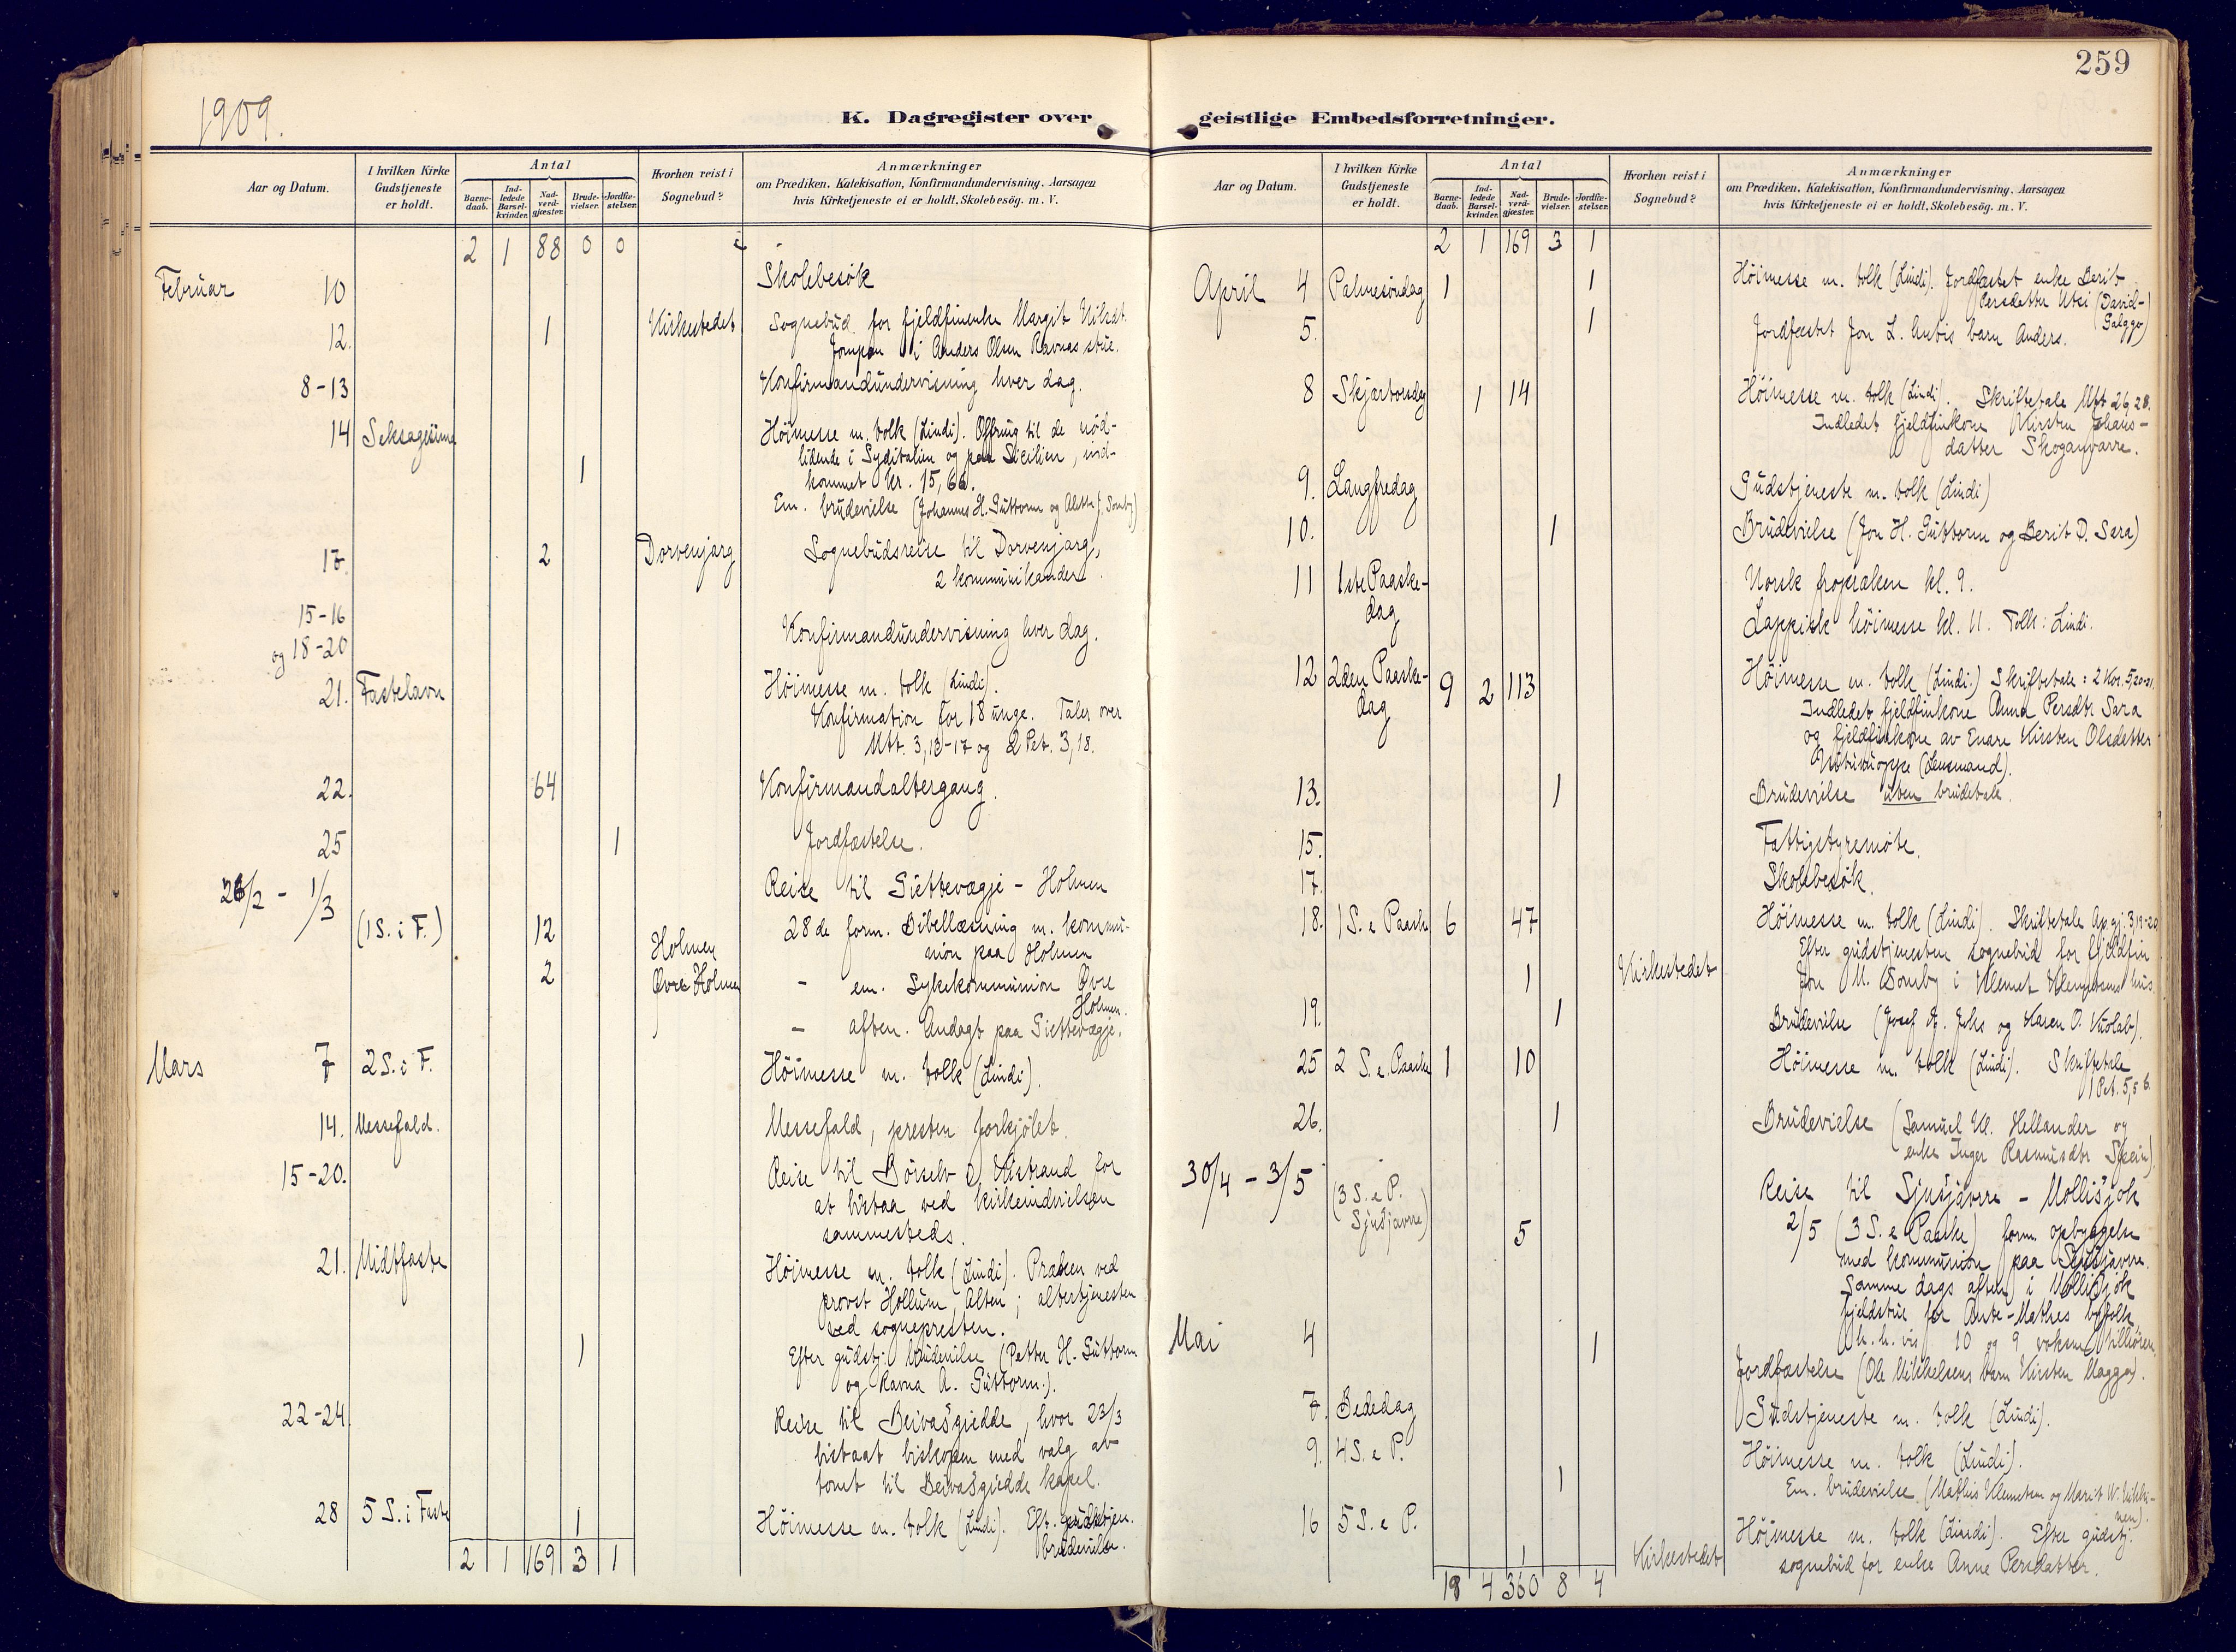 259
1909.
K. Dagregister over geistlige Embedsforretninger.
Aar og Datum. I hvilken Kirke Gudstjeneste er holdt. Antal Barnedaab. Indledede Barselkvinder. Nadverdgjæster. Brudevielser. Jordfæstelser. Hvorhen reist i Sognebud? Anmærkninger om Prædiken, Katekisation, Konfirmandundervisning, Aarsagen hvis Kirketjeneste ei er holdt, Skolebesög. m. V.
2 1 88 0 0
Februar 10 Skolebesök
12. 1 Kirkestedet Sognebud for fjeldfinenke Margit Nilsdt.
i Anders Olsen Ravnas stue.
8-13 Konfirmandundervisning hver dag.
14 Seksagesima Höimesse m. tolk (Lindi). Offring til de nöd-
lidende i Syditalien og paa Sicilien, ind-
1 kommet kr. 15,66.
Em. brudevielse (Johannes H. Guttorm og
17. 2 Dorvenjarg Sognebudsreise til Dorvenjarg,
2 kommunikander.
15-16
og 18-20 Konfirmandundervisning hver dag.
21. Fastelavn Höimesse m. tolk (Lindi).
Konfirmation for 18 unge. Taler over
Mtt. 3,13-17 og 2 Pet. 3,18.
22. 64 Konfirmandaltergang.
25 1 Jordfæstelse.
26/2 - 1/3 Reise til Giettevægje - Holmen
(1 S. i F.) 12 Holmen 28de form. Bibellæsning m. kommu-
nion paa Holmen
2 Øvre Holmen - em. Sykekommunion Øvre
Holmen.
- aften. Andagt paa Giettevægje.
Mars 7 2 S. i F. Höimesse m. tolk (Lindi).
14. Messefald. Messefald, presten forkjölet.
15-20. Reise til Börselv o. Kistrand for
at bistaa ved kirkeindvielsen
sammesteds.
21. Midtfaste Höimesse m. tolk (Lindi). Præken ved
provst Hollum, Alten; altertjenesten
ved sognepresten.
1 Efter gudstj. brudevielse (Petter H. Guttorm
og Ravna A. Guttorm.).
22-24. Reise til Beivasgiedde, hvor 23/3
bistaat biskopen med valg av
tomt til Beivasgiedde kapel.
28 5 S. i Faste 1 Höimesse m. tolk (Lindi). Eft. gudstjen.
brudevielse.
2 1 169 3 1
Aar og Datum. I hvilken Kirke Gudstjeneste er holdt. Antal Barnedaab. Indledede Barselkvinder. Nadverdgjæster. Brudevielser. Jordfæstelser. Hvorhen reist i Sognebud? Anmærkninger om Prædiken, Katekisation, Konfirmandundervisning, Aarsagen hvis Kirketjeneste ei er holdt, Skolebesög. m. V.
2 1 169 3 1
April 4 Palmesöndag 1 1 Höimesse m. tolk (Lindi). Jordfæstet enke Berit
Persdatter Utsi (David-
Galggo)
5. 1 Jordfæstet Jon L. barn Anders.
8 Skjærtorsdag 1 14 Höimesse m. tolk (Lindi). Skriftetale Mtt 26,28.
Indledet fjeldfinkone Kirsten Johans-
datter Skoganvarre.
9. Langfredag Gudstjeneste m. tolk (Lindi)
10. 1 Brudevielse (Jon H. Guttorm og Berit D. Sara)
11 1ste Paaske-
dag Norsk fropræken kl. 9.
Lappisk höimesse kl. 11. Tolk: Lindi.
12 2den Paaske-
dag 9 2 113 Höimesse m. tolk (Lindi.) Skriftetale: 2 Kor. 5,20-21.
Indledet fjeldfinkone Anna Persdtr Sara
og fjeldfinkone av Enare Kirsten Olsdatter
(Lensmand).
13. 1 Brudevielse uten brudetale.
15. Fattigstyremöte.
17. Skolebesök.
18. 1 S. e Paaske 6 47 Höimesse m. tolk (Lindi). Skriftetale Ap.gj. 3,19-20
Efter gudstjenesten sognebud for fjeldfin
1 Kirkestedet Jon M. Somby i Klemet Klemetsens hus.
19. 1 Brudevielse (Josef A. og Karen O. Vuolab).
25 2 S. e. Paaske 1 10 Höimesse m. tolk (Lindi). Skriftetale
1 Pet. 5,5 6.
26. 1 Brudevielse (Samuel Kl. Hellander og
enke Inger Rasmusdtr
30/4 - 3/5 (3 S. e P.
Sjusjavrre) Reise til Sjusjavrre - Mollisjok
5 2/5 (3 S. e Paaske) form. opbyggelse
med kommunion paa Sjusjavrre.
Samme dags aften i Mollisjok
fjeldstue for Ante-Mathes
h. h. vis 10 og 9 voksne tilhörere.
Mai 4 1 Jordfæstelse (Ole Mikkelsens barn Kirsten Magga).
7. Bededag Gudstjeneste m. tolk (Lindi).
9. 4 S. e P. Höimesse m. tolk (Lindi).
1 Em. brudevielse (Mathis Klemetsen og Marit
16 5 S. e P. Höimesse m. tolk (Lindi). Efter gudstj.
1 Kirkestedet sognebud for enke Anne Persdatter.
19 4 360 8 4